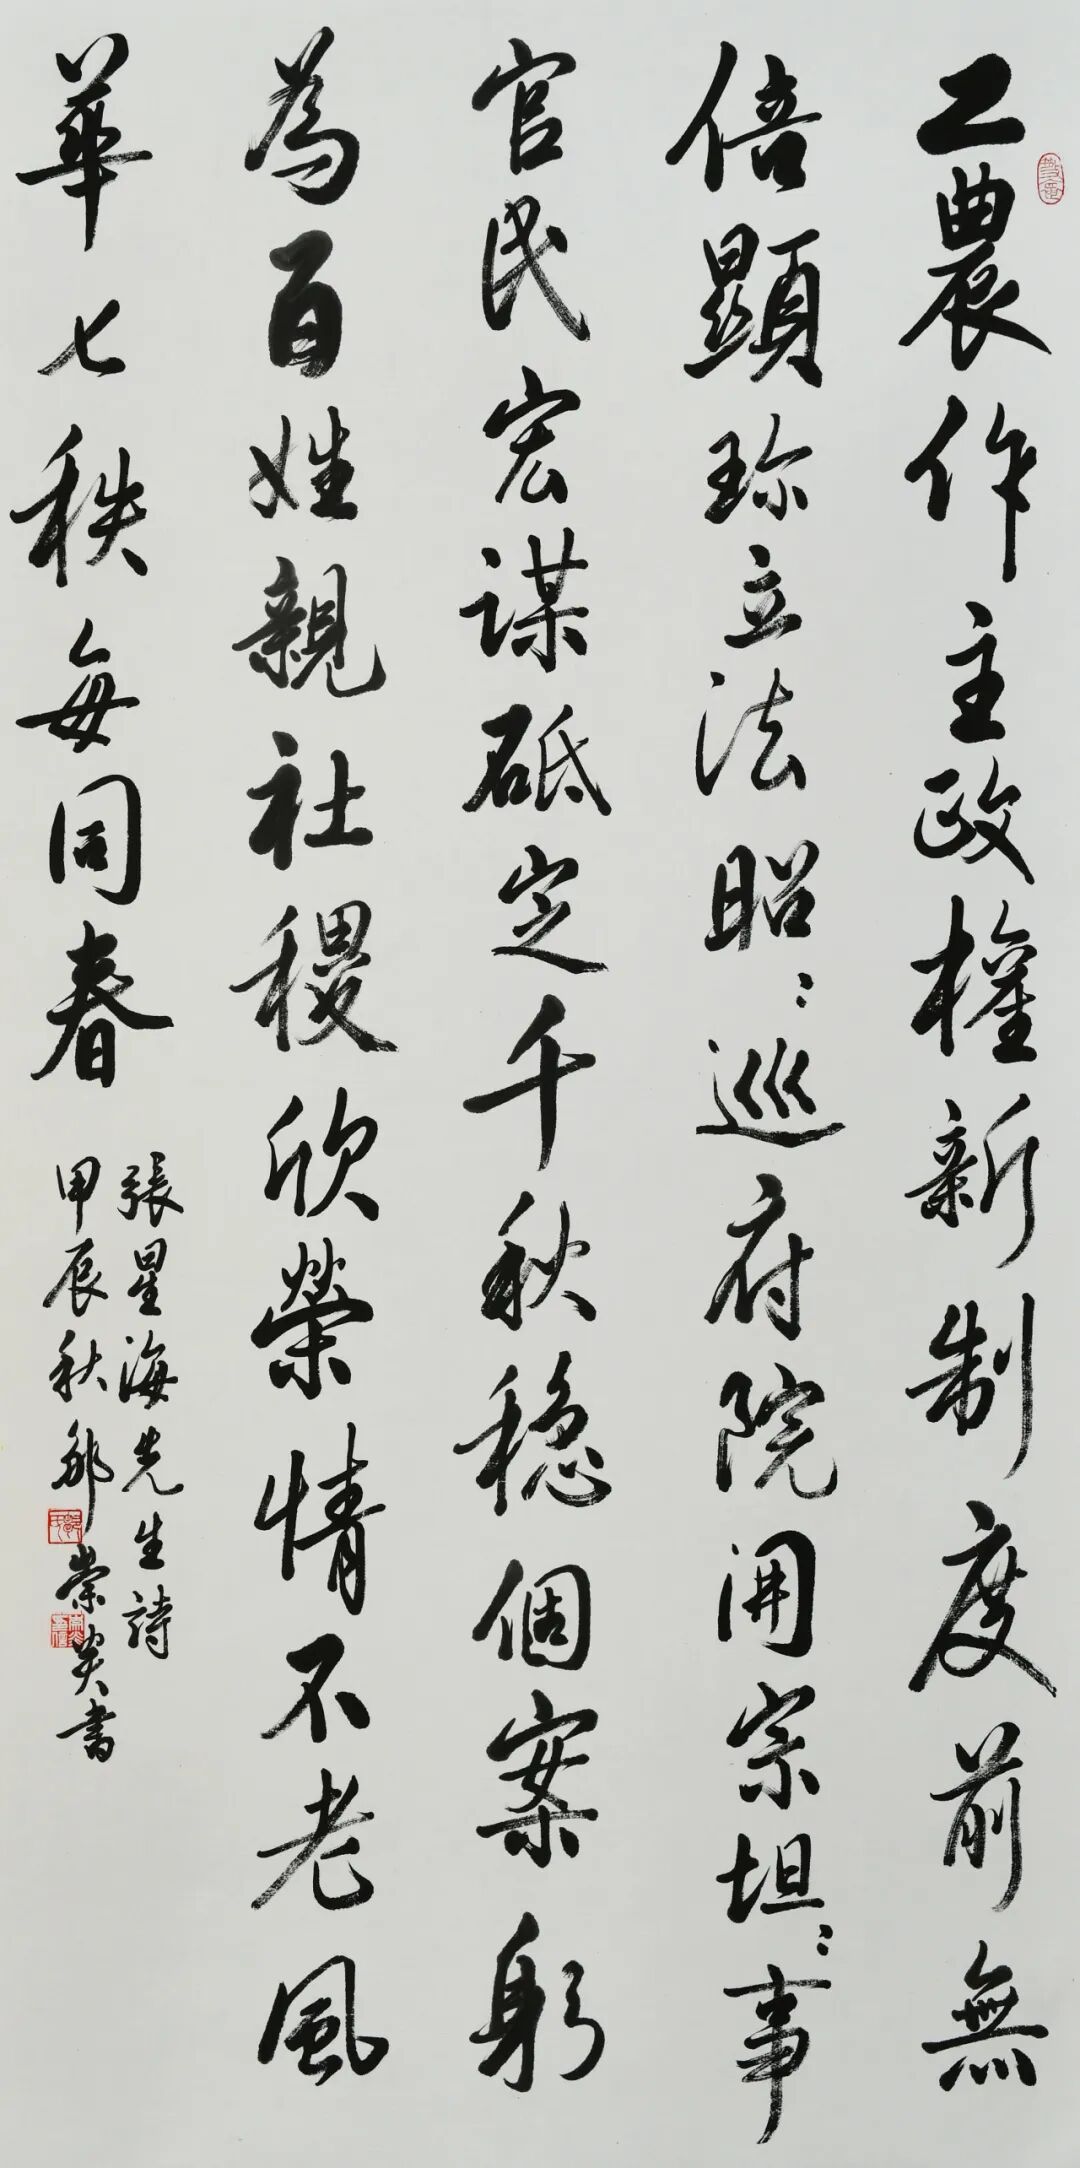 工農作主政權新制度前無
倍顯珍立法昭〻巡府院開宗坦〻事
官民宏謀砥定千秋穩個案躬
為百姓親社稷欣榮情不老風
華七秩每同春
張星海先生詩
甲辰秋 崇 書